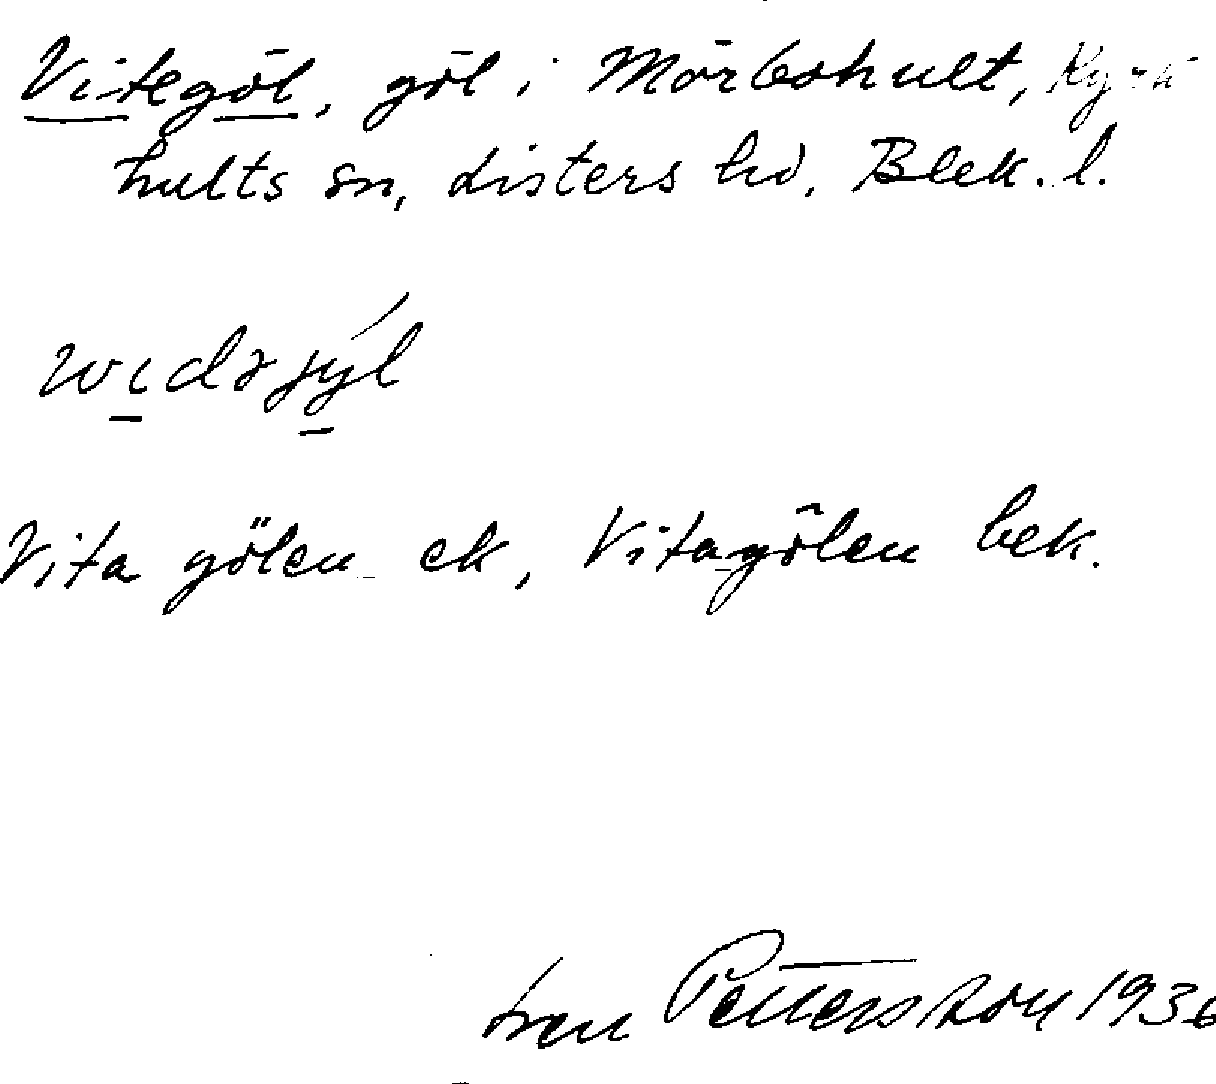 Vitegöl, göl i Mörbohult, Kyrk
hults sn, Listers hd, Blek. l.
Vita gölen ek, Vitagölen bek.
Pettersson 1936